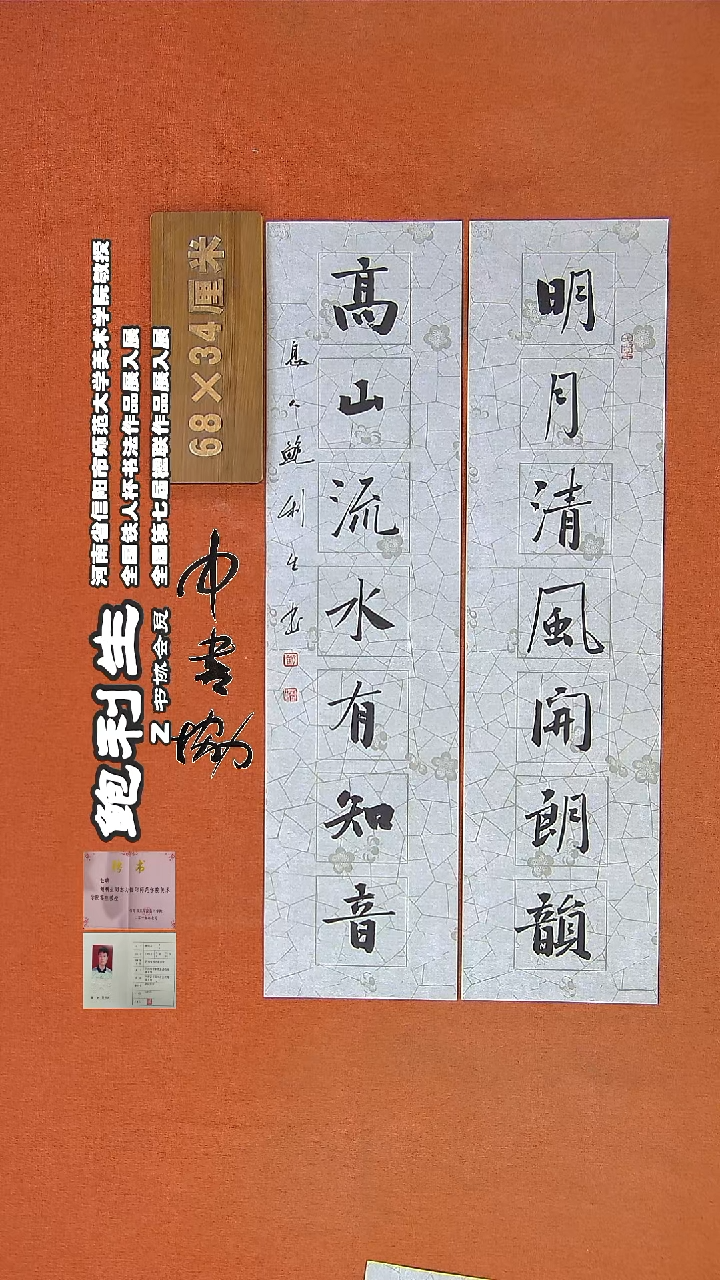 明月清風開朗韻
高山流水有知音
息人鲍利生书
68×34厘米
中书协
鲍利生
Z书协会员
河南省信阳市师范大学美术学院教授
全国铁人杯书法作品展入展
全国第七届楹联作品展入展
聘书